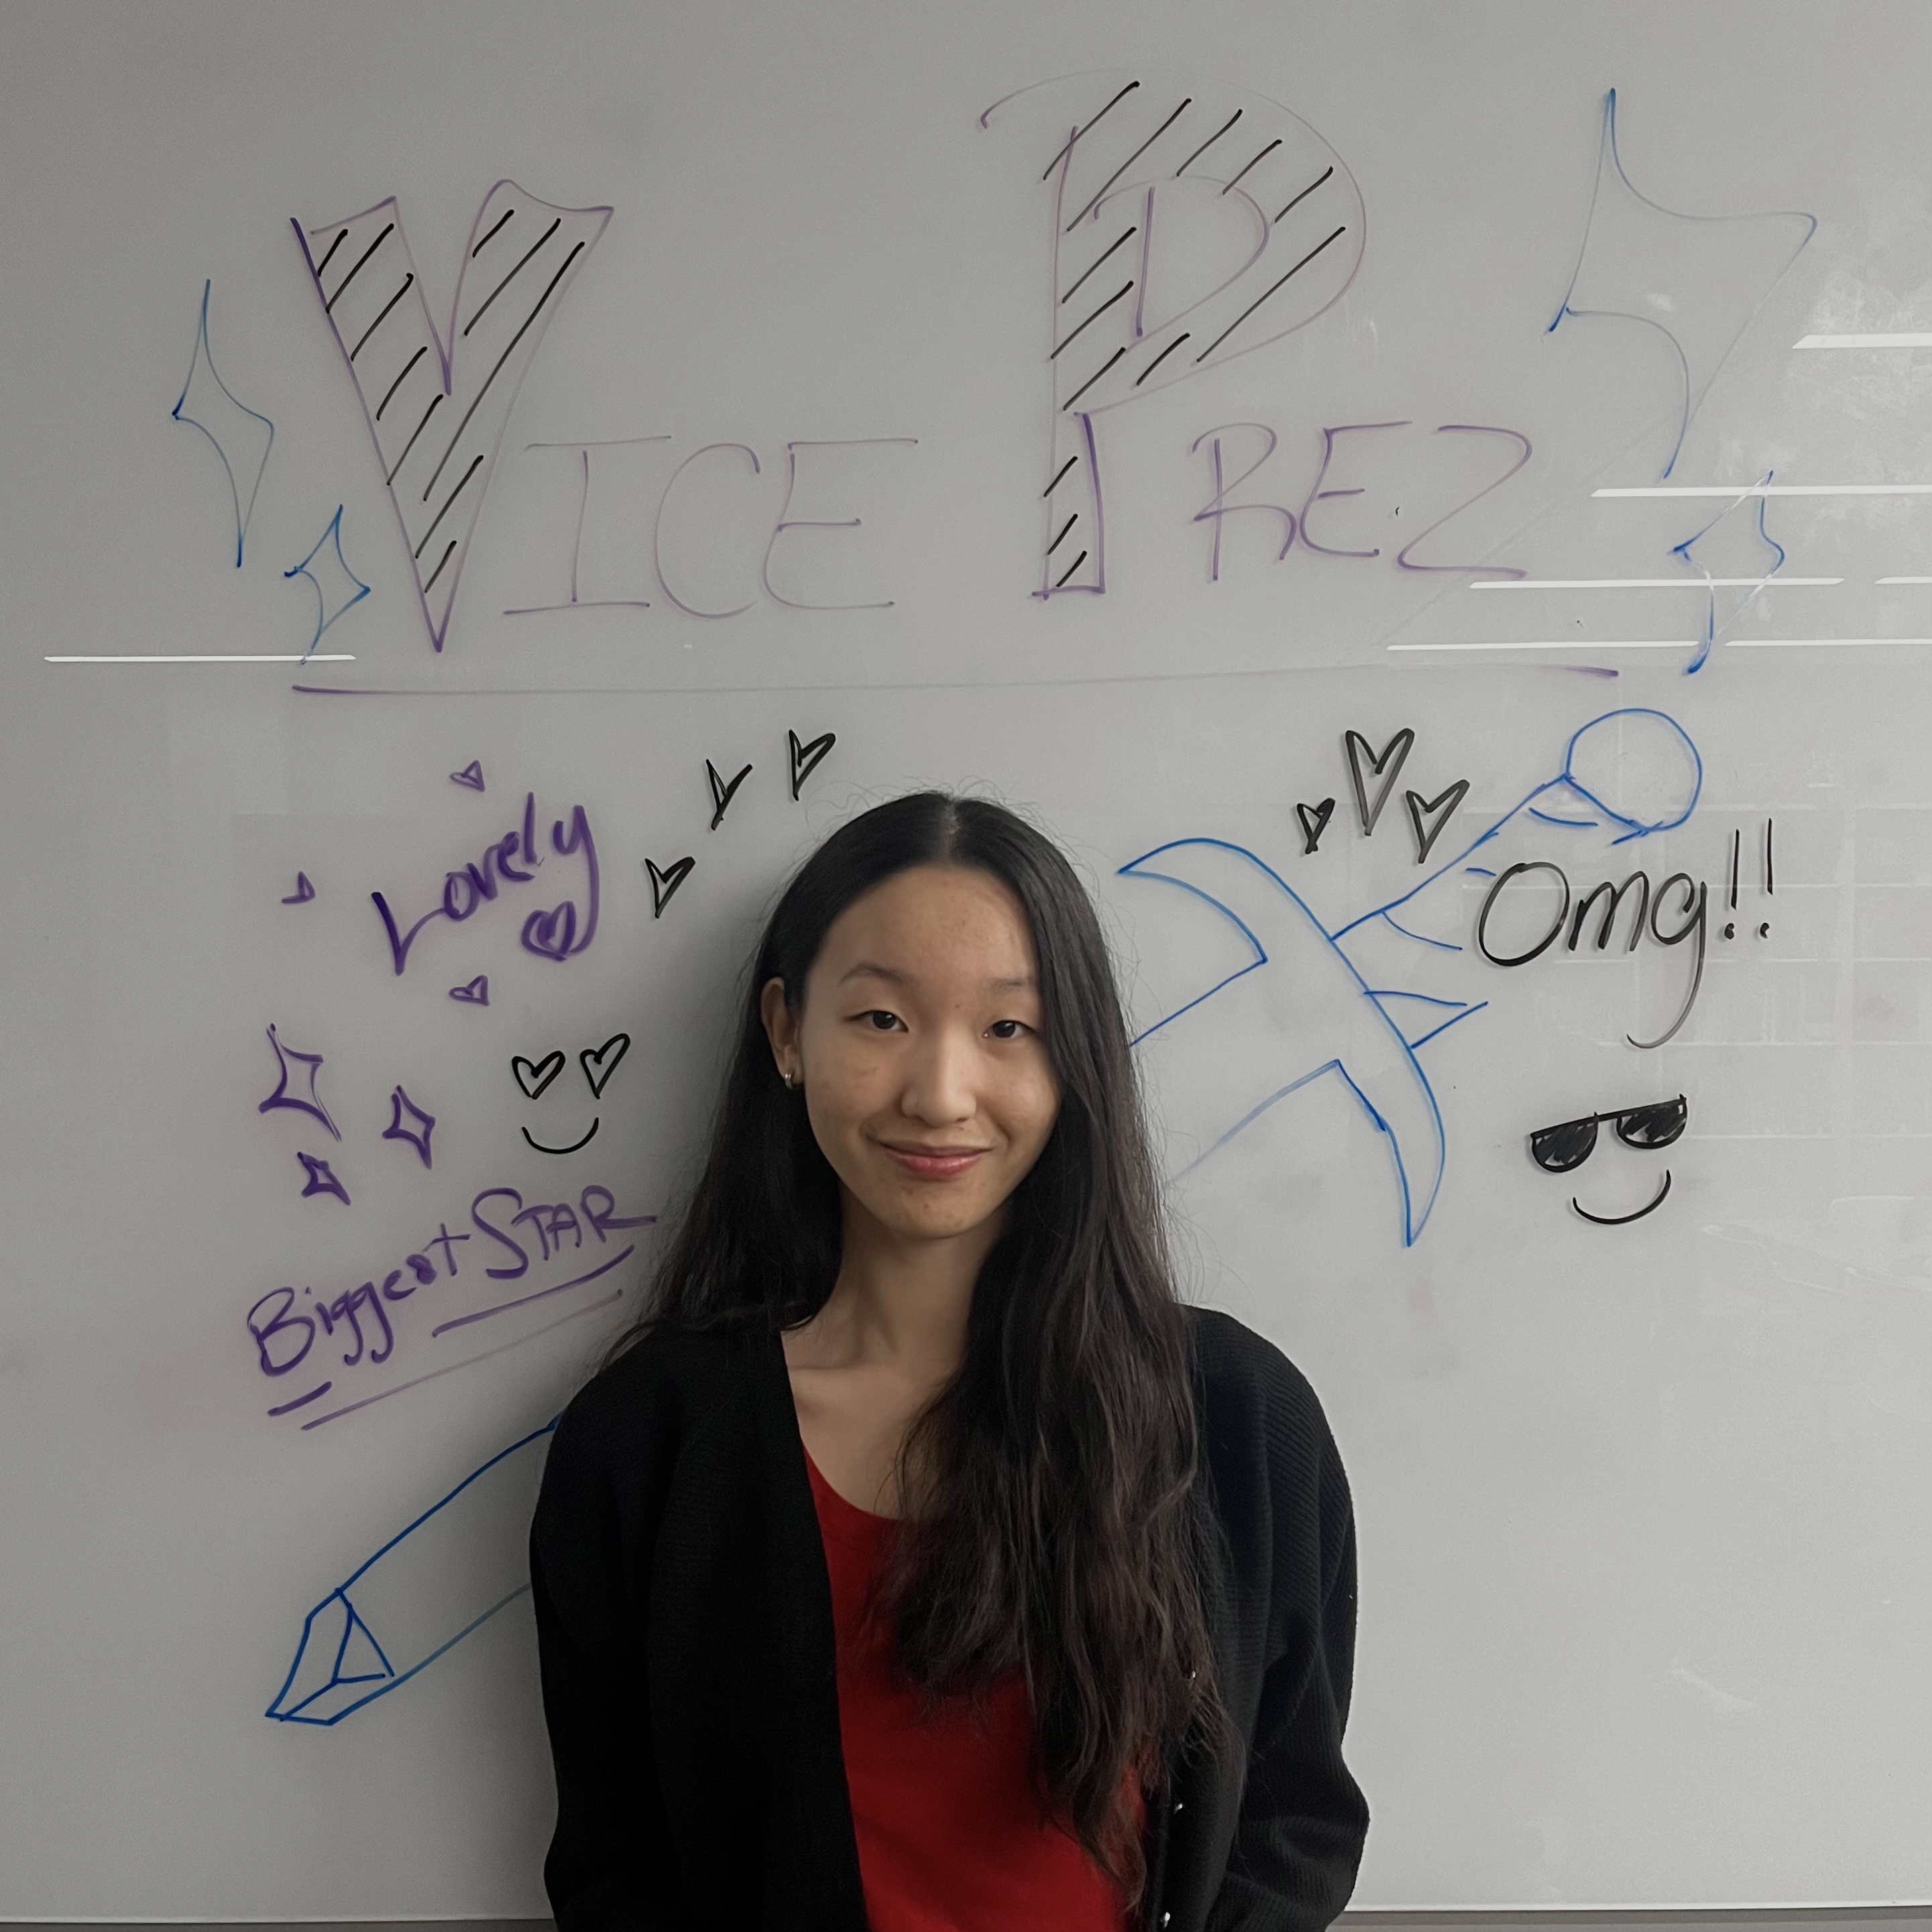 VICE PREZ
Lovely
Omg!!
Biggest STAR